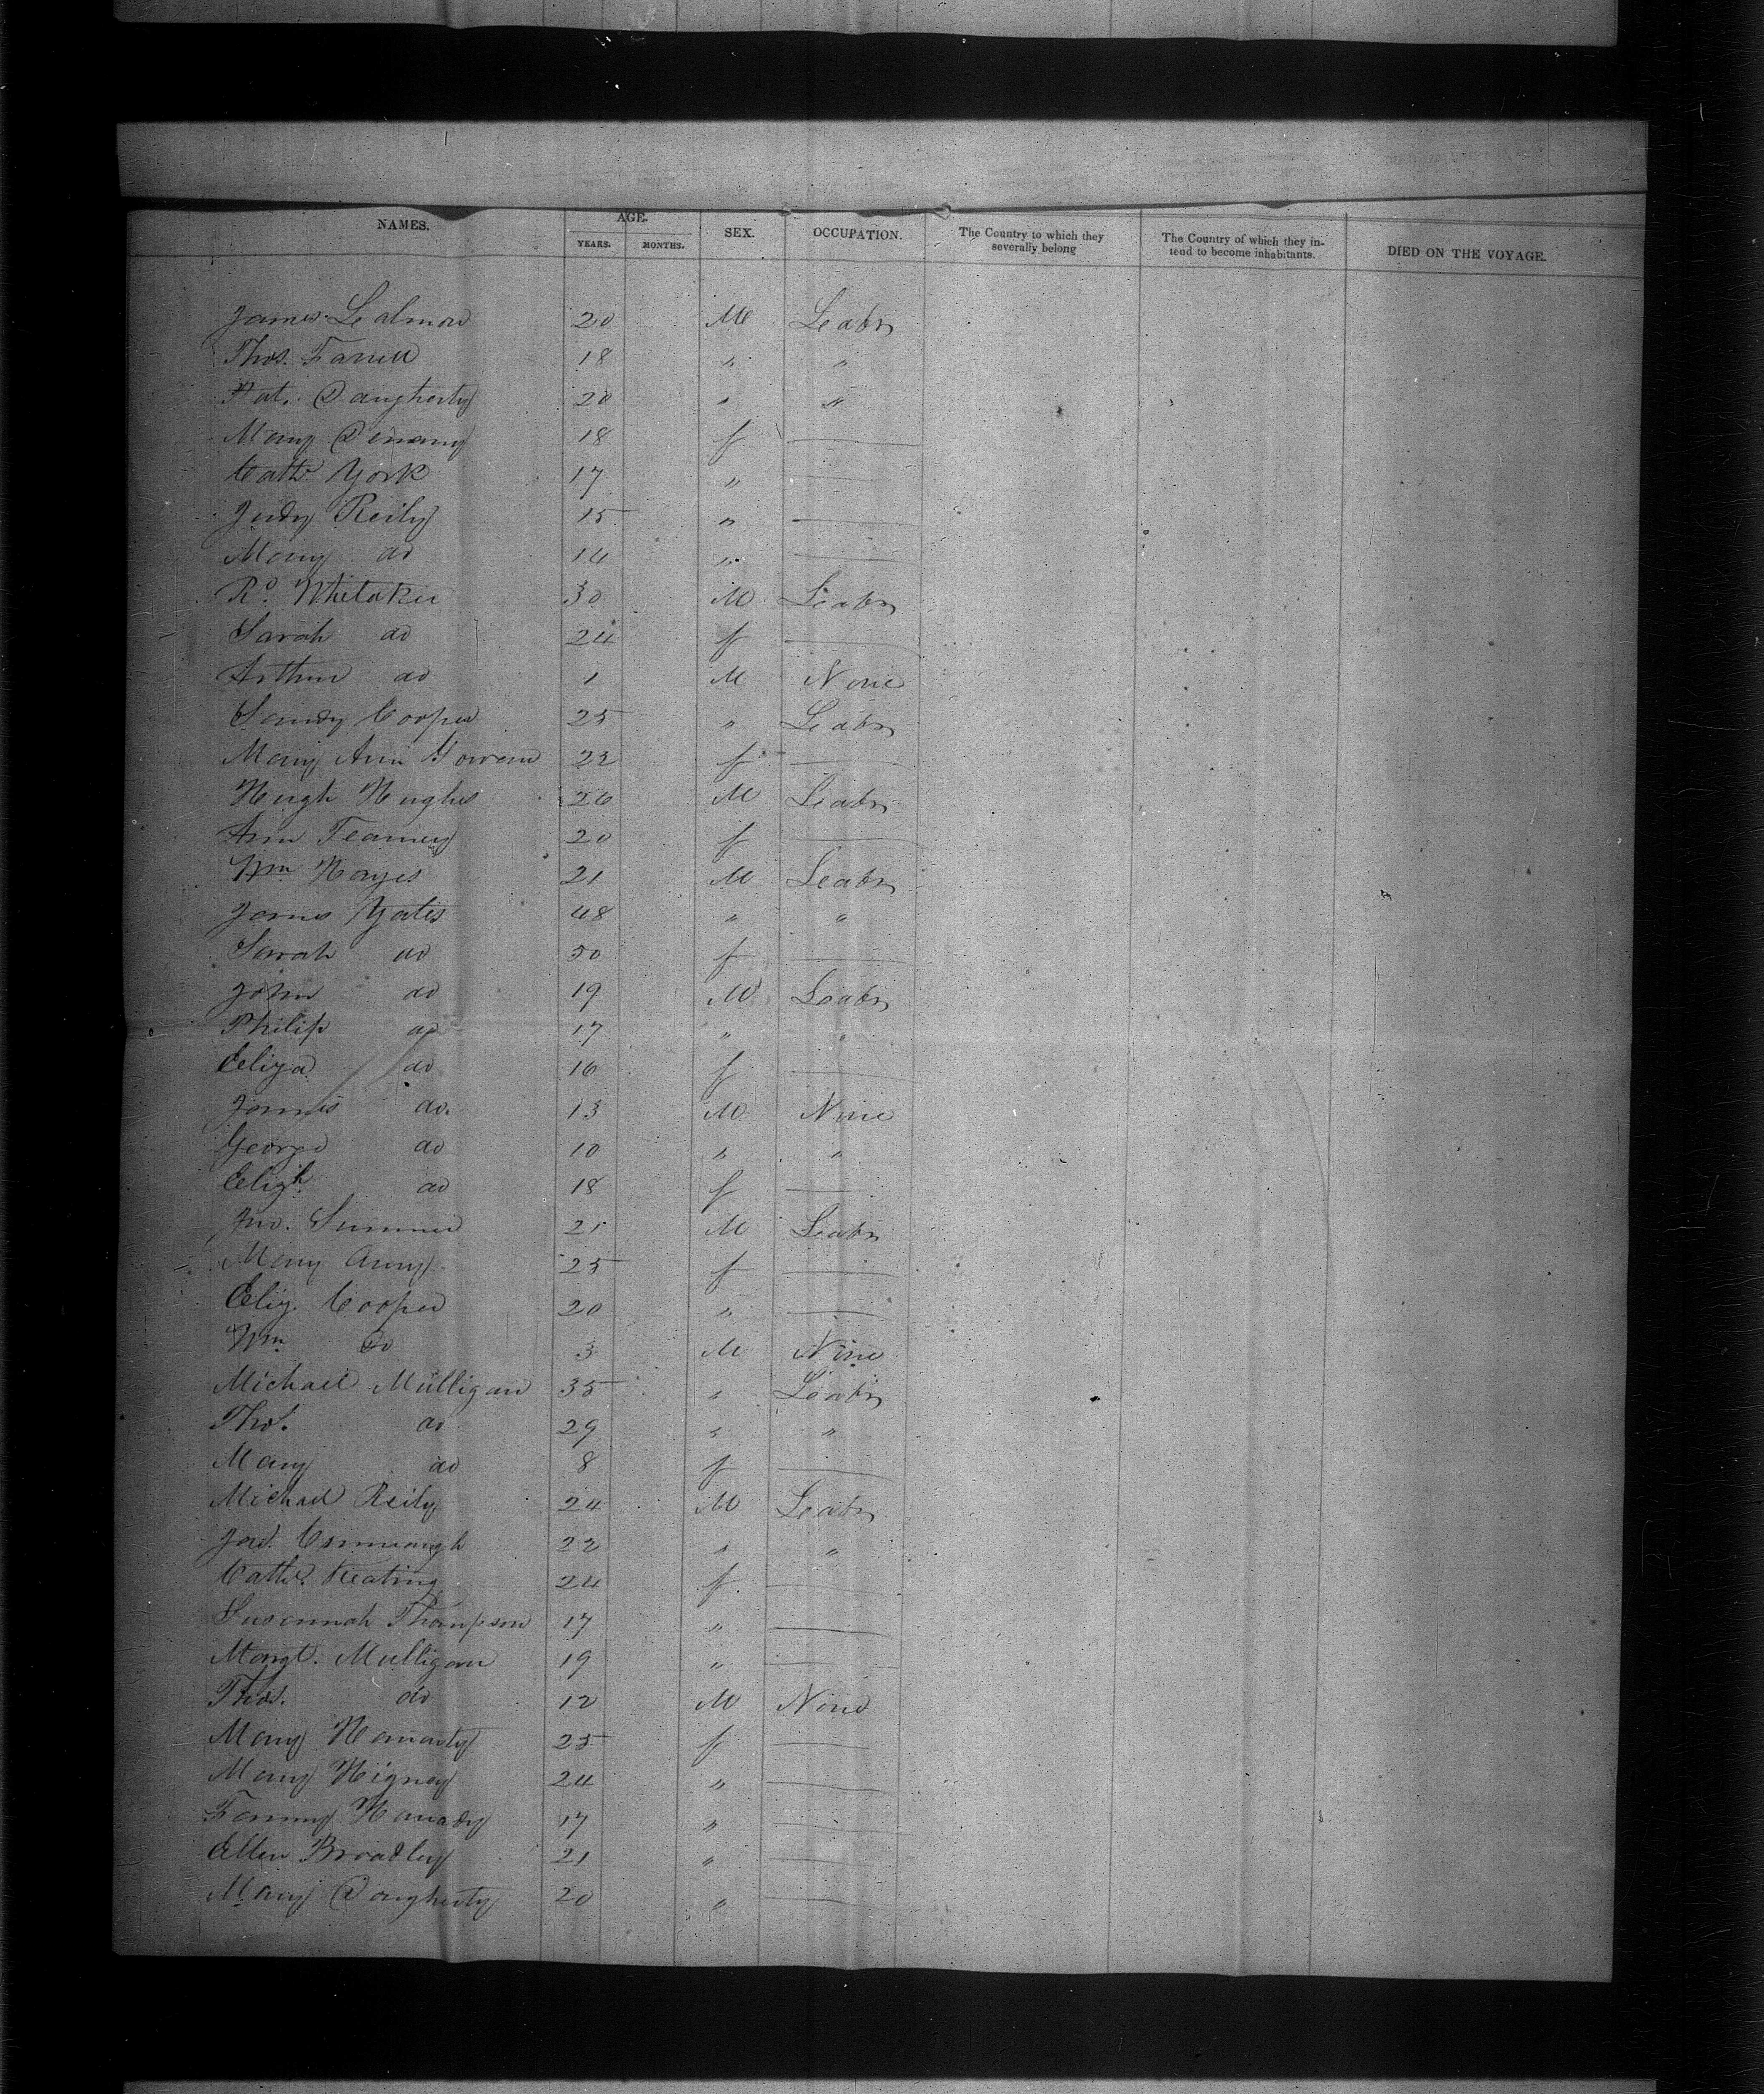 NAMES. AGE. YEARS. MONTHS. SEX. OCCUPATION. The Country to which they severally belong The Country of which they intend to become inhabitants. DIED ON THE VOYAGE.
James 20 M Leabr
Thos. Farrell 18 " "
Pat. Daugherty 20 " "
Mary 18 f —
Cathe York 17 " —
Judy Reily 15 " —
Mary do 14 " —
Rd. Whitaker 30 M Leabr
Sarah do 24 f —
Arthur do 1 M None
Sandy Cooper 25 " Leabr
Mary Ann 22 f —
Hugh Hughes 26 M Leabr
Ann Feaney 20 f —
Wm Hayes 21 M Leabr
James Yates 48 " "
Sarah do 50 f —
John do 19 M Leabr
Philip do 17 " "
Eliza do 16 f —
James do. 13 M None
George do 10 " "
Elizh do 18 f —
Jno. Sumner 21 M Leabr
Mary 25 f —
Eliz. Cooper 20 " —
Wm. Do 3 M None
Michael Mulligan 35 " Leabr
Thos. do 29 " "
Mary do 8 f —
Michael Reily 24 M Leabr
22 " "
Cathe. Keating 24 f —
Susannah Thompson 17 " —
Margt. Mulligan 19 " —
Thos. do 12 M None
Mary 25 f —
Mary Higney 24 " —
Fanny 17 " —
Ellen Bradley 21 " —
Mary Daugherty 20 " —